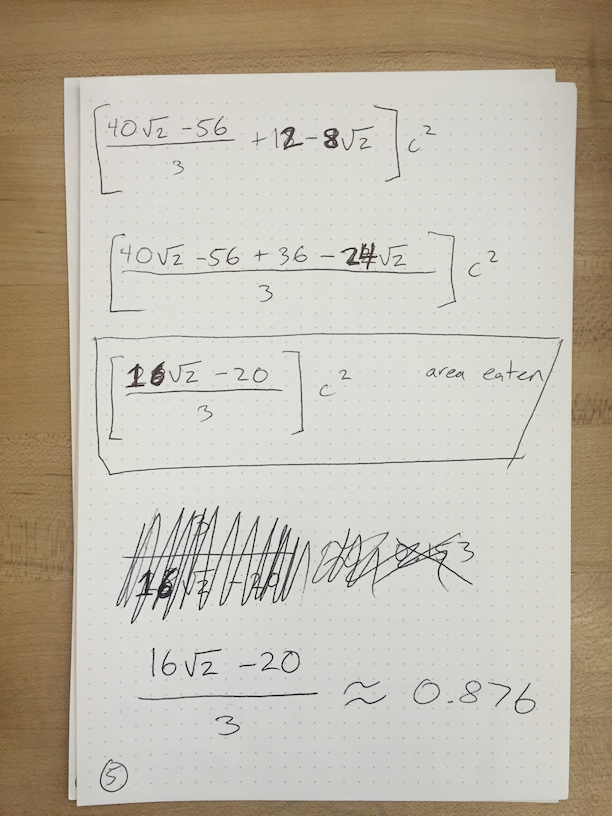 [(40√2 - 56)/3 + 12 - 8√2] c²
[(40√2 - 56 + 36 - 24√2)/3] c²
[(16√2 - 20)/3] c² area eaten
16√2 - 20 3
(16√2 - 20)/3 ≈ 0.876
5